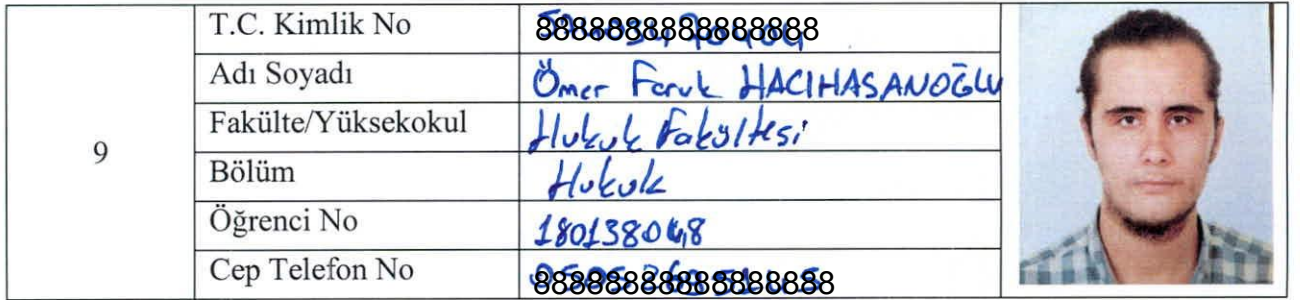 9
T.C. Kimlik No 88888888888888888
Adı Soyadı Ömer Faruk HACIHASANOĞLU
Fakülte/Yüksekokul Hukuk Fakültesi
Bölüm Hukuk
Öğrenci No
Cep Telefon No